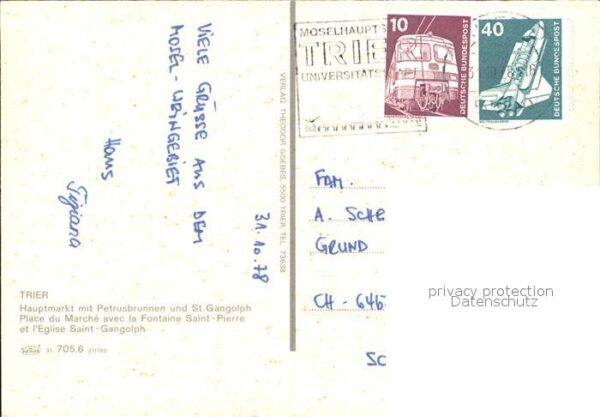 VIELE GRÜSSE AUS DEM
MOSEL-WEINGEBIET
Hans
Tiziana
31.10.78
TRIER
Hauptmarkt mit Petrusbrunnen und St. Gangolph
Place du Marché avec la Fontaine Saint-Pierre
et l'Eglise Saint-Gangolph
31 705.6
VERLAG THEODOR GOEBRS, 5500 TRIER, TEL. 73638
MOSELHAUPTS
TRIER
UNIVERSITÄTS
10
DEUTSCHE BUNDESPOST
40
DEUTSCHE BUNDESPOST
FAM.
A. SCHE
GRUND
CH - 646
SC
privacy protection
Datenschutz